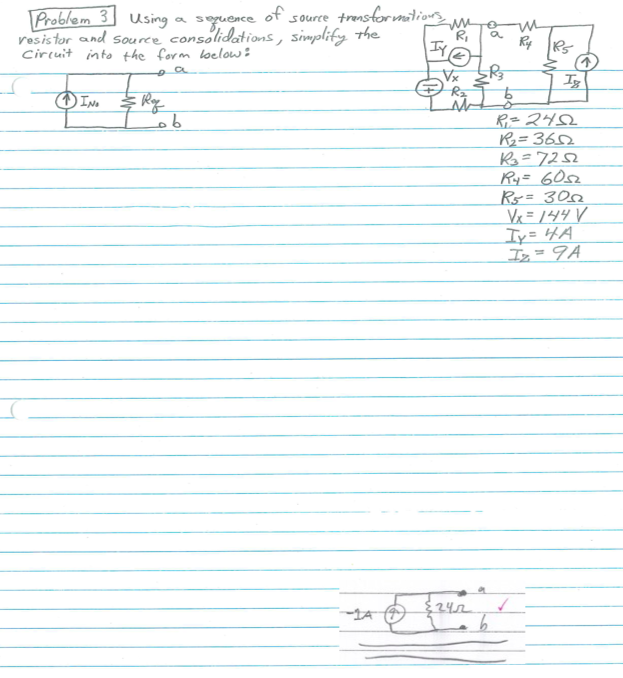 Problem 3 Using a sequence of source transformations,
resistor and source consolidations, simplify the
circuit into the form below:
a
I_No Req
b
R₁ a R₄ R₅
I_Y
V_X R₃ I_Z
R₂ b
R₁ = 24Ω
R₂ = 36Ω
R₃ = 72Ω
R₄ = 60Ω
R₅ = 30Ω
V_X = 144 V
I_Y = 4A
I_Z = 9A
a
-1A 24Ω ✓
b